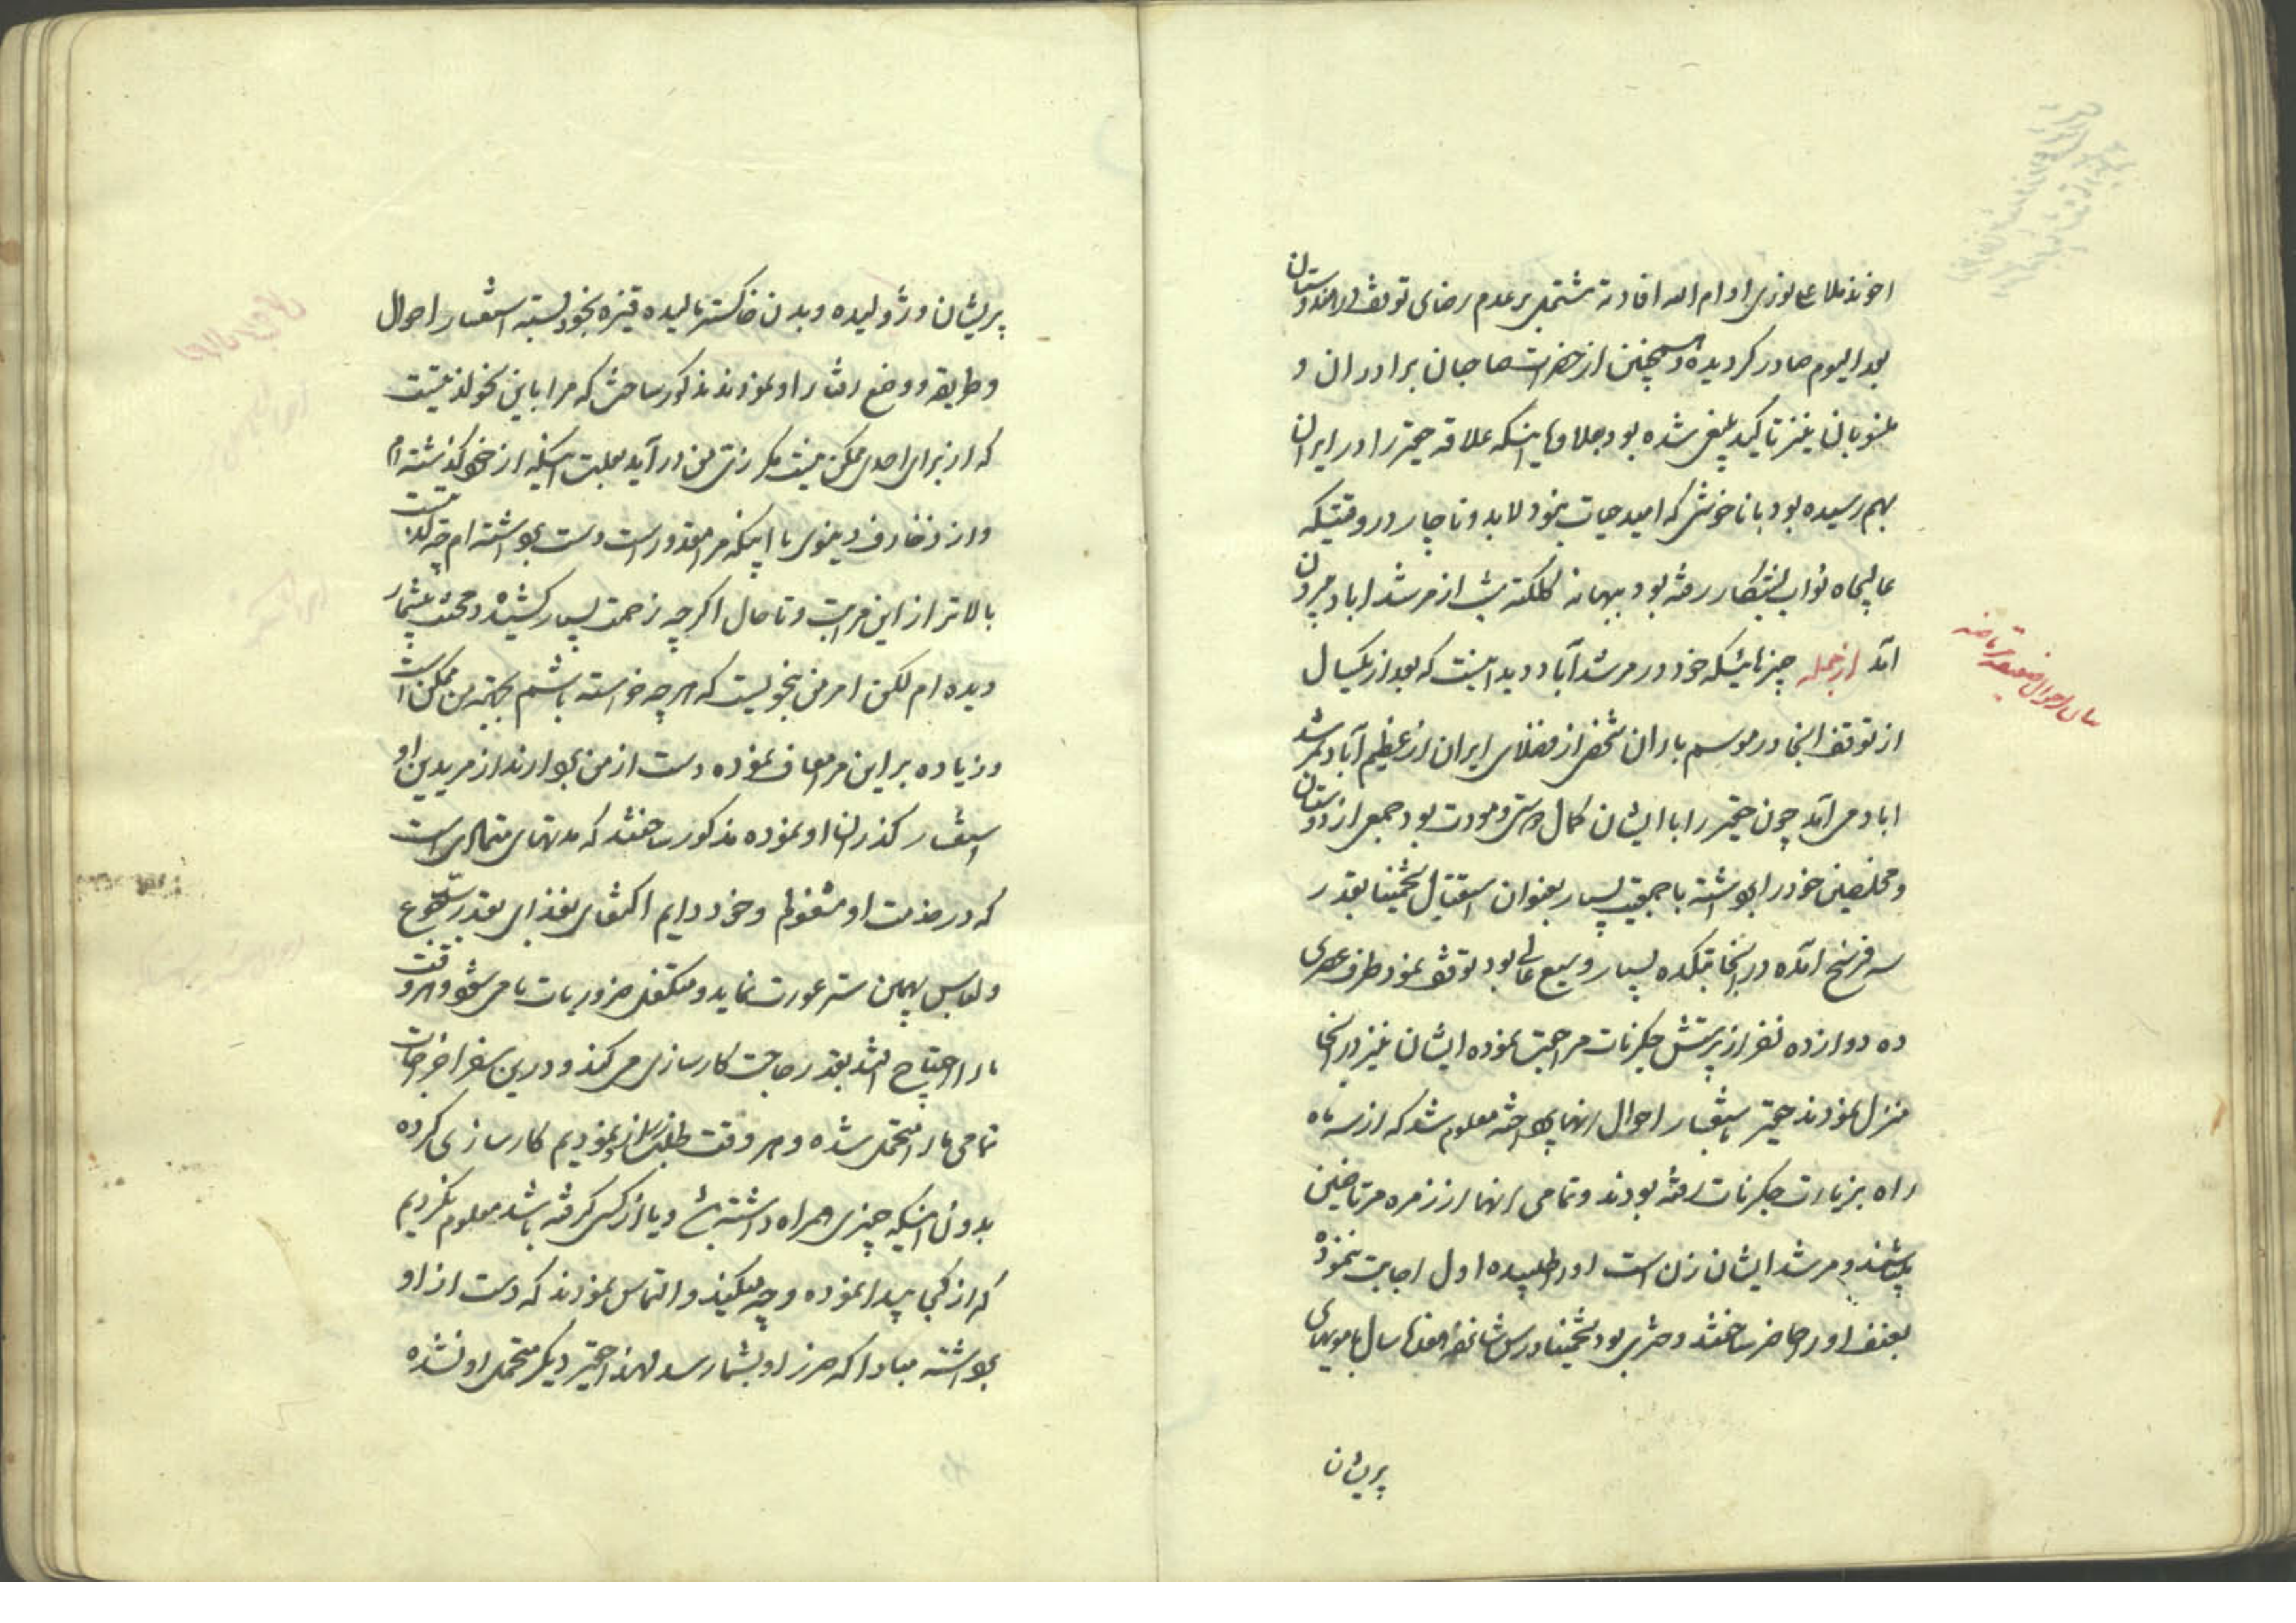 اخوند ملا علی نوری ادام الله افاداته مشتمل بر عدم رضای توقف در هندوستان
بعد الیوم صادر گردیده و همچنین از حضرات صاحبان برادران و
منسوبان نیز تاکید بلیغی شده بود بعلاوه اینکه علاقه حقیر را در ایران
بهم رسیده بود با ناخوشی که امید حیات نبود لابد و ناچار در وقتیکه
عالیجاه نواب بشکار رفته بود ببهانه کلکته شب از مرشد اباد بیرون
آمد از جمله چیزهائیکه خود در مرشد آباد دید اینست که بعد از یکسال
از توقف انجا در موسم باران شخصی از فضلای ایران از عظیم آباد بمرشد
اباد می آمد چون حقیر را با ایشان کمال دوستی و مودت بود جمعی از دوستان
و مخلصین خود را برداشته با جمعیت بسیار بعنوان استقبال تخمینا بقدر
سه فرسخ آمده در انجا بتکده بسیار وسیع عالی بود توقف نمود طرف عصری
ده دوازده نفر از پرستش جکرنات مراجعت نموده ایشان نیز در انجا
منزل نمودند حقیر باستفسار احوال انها پرداخته معلوم شد که از سه ماه
راه بزیارت جکرنات رفته بودند و تمامی انها از زمره مرتاضین
میباشند و مرشد ایشان زن است او را طلبیده اول اجابت ننموده
بعنف او را حاضر ساختند دختری بود تخمینا در سن شانزده هفده سال با مویهای
پریشان
بیان احوال ضعیفه مرتاضه
پریشان و ژولیده و بدن خاکستر مالیده قیزه بخود بسته استفسار احوال
و طریقه و وضع رفتار او نمودند مذکور ساخت که مرا باین نحو لذتیست
که از برای احدی ممکن نیست مگر زنی من در آید بعلت اینکه از خود گذشته ام
و از زخارف دنیوی با اینکه مرا مقدور است دست برداشته ام چه لذتیست
بالاتر از این مراتب و تا حال اگرچه زحمت بسیار کشیده و محنت بیشمار
دیده ام لکن امر من بنحویست که هر چه خواسته باشم بجهته من ممکن است
و زیاده بر این مرا معاف نموده دست از من بردارند از مریدین او
استفسار گذران او نموده مذکور ساختند که مدتهای متمادی است
که در خدمت او مشغولیم و خود دایم اکتفای بغذای بقدر سد جوع
و لباس بهمین ستر عورت نماید و متکفل ضروریات ما می شود و هر وقت
ما را احتیاج افتد بقدر حاجت کارسازی می کند و در این سفر اخراجات
تمامی ما را متحمل شده و هر وقت طلب از او نمودیم کارسازی کرده
بدون اینکه چیزی همراه داشته باشد و یا از کسی گرفته باشد معلوم نکردیم
که از کجا پیدا نموده و چه میکند و التماس نمودند که دست از او
برداشته مبادا که ضرر او بشما رسد لهذا حقیر دیگر متحمل او نشده